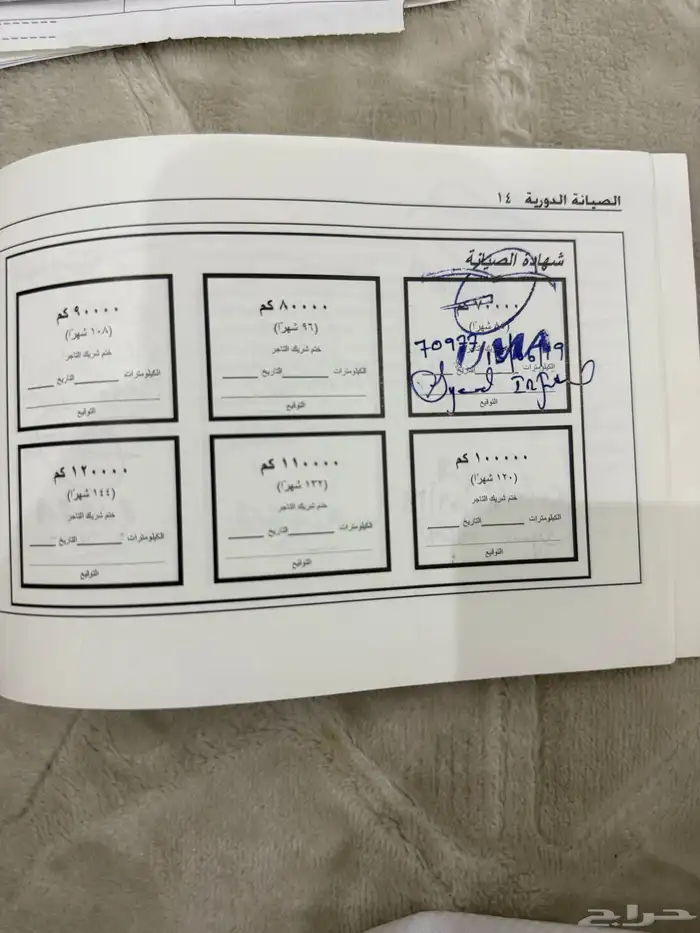 الصيانة الدورية ١٤
شهادة الصيانة
٧٠٠٠٠ كم
70977
Syed
الكيلومترات التاريخ
التوقيع
٨٠٠٠٠ كم
(٩٦ شهرًا)
ختم شريك التاجر
الكيلومترات التاريخ
التوقيع
٩٠٠٠٠ كم
(١٠٨ شهرًا)
ختم شريك التاجر
الكيلومترات التاريخ
التوقيع
١٠٠٠٠٠ كم
(١٢٠ شهرًا)
ختم شريك التاجر
الكيلومترات التاريخ
التوقيع
١١٠٠٠٠ كم
(١٣٢ شهرًا)
ختم شريك التاجر
الكيلومترات التاريخ
التوقيع
١٢٠٠٠٠ كم
(١٤٤ شهرًا)
ختم شريك التاجر
الكيلومترات التاريخ
التوقيع
حراج